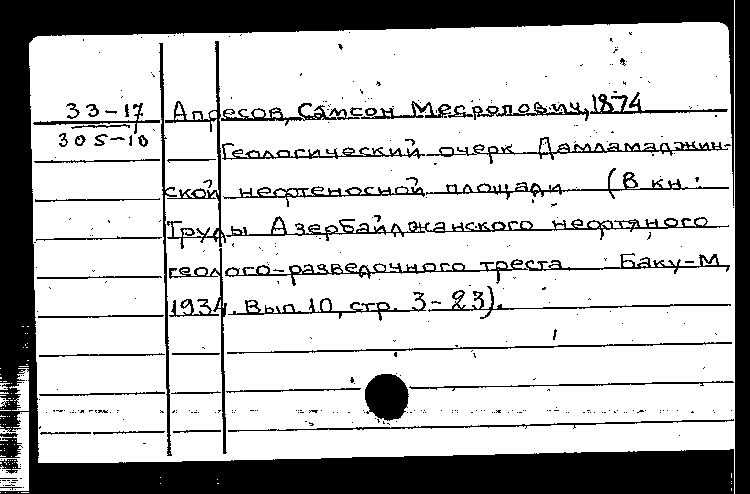 33-17 Апресов, Самсон Месропович, 1874
305-10
Геологический очерк Дамламаджин-
ской нефтеносной площади (В кн.:
Труды Азербайджанского нефтяного
геолого-разведочного треста Баку-М,
1934. Вып. 10, стр. 3-23).